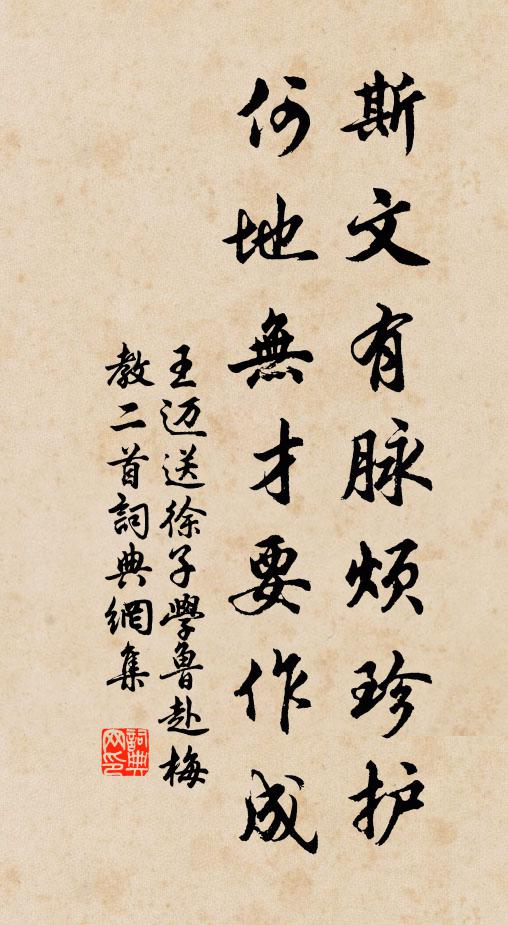 斯文有脉烦珍护
何地無才要作成
王迈送徐子學魯赴梅
教二首詞典網集
詞典
网印